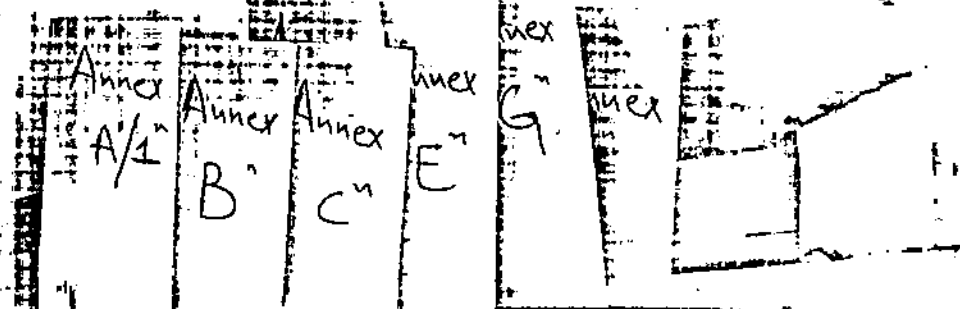 Annex
A/1"
Annex
B"
Annex
C"
nnex
E"
nex
G"
nnex